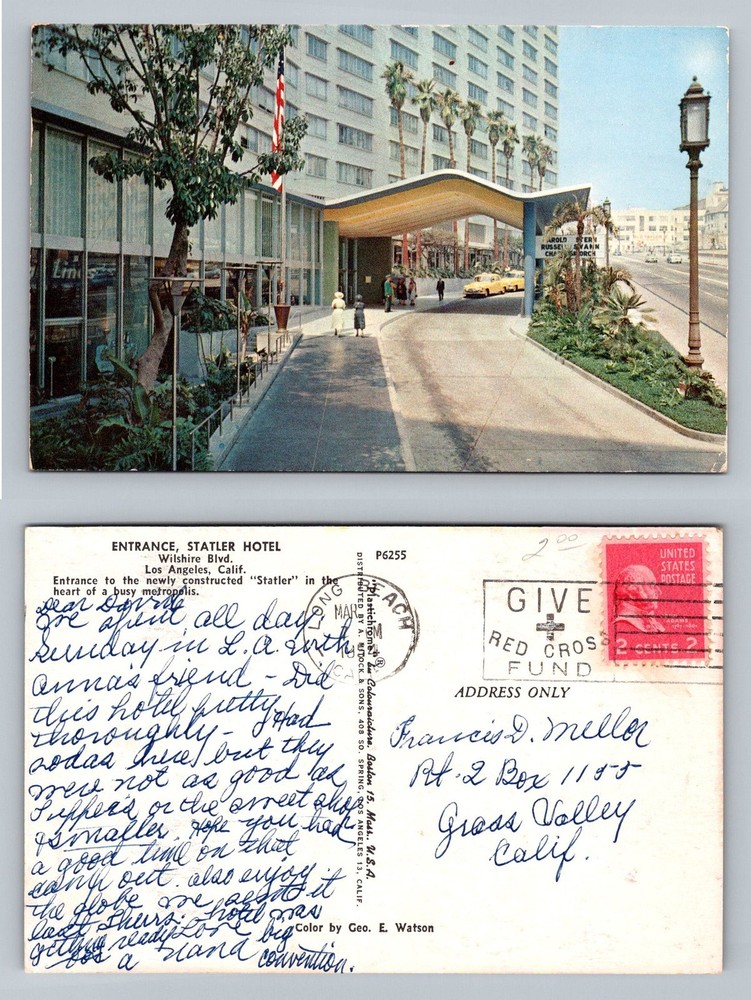 AROLD STERN
RUSSE SWANN
ENTRANCE, STATLER HOTEL
Wilshire Blvd.
Los Angeles, Calif.
Entrance to the newly constructed "Statler" in the
heart of a busy metropolis.
P6255
2 00
Dear David
We spent all day
Sunday in L.A. with
Anna's friend - Did
this hotel pretty
thoroughly - Had
sodas here but they
were not as good as
or the sweet shop
& smaller. Hope you had
a good time on that
camp out. also enjoy
the globe we sent it
last Thurs. hotel was
getting ready big
Love Nana
for a convention.
"Plastichrome" by Colourpicture, Boston 15, Mass., U.S.A.
DISTRIBUTED BY A. MITOCK & SONS, 408 SO. SPRING, LOS ANGELES 13, CALIF.
LONG BEACH
MAR
GIVE
RED CROSS
FUND
UNITED
STATES
POSTAGE
2 CENTS 2
ADDRESS ONLY
Francis D. Mellor
Rt. 2 Box 1155
Grass Valley
Calif.
Color by Geo. E. Watson